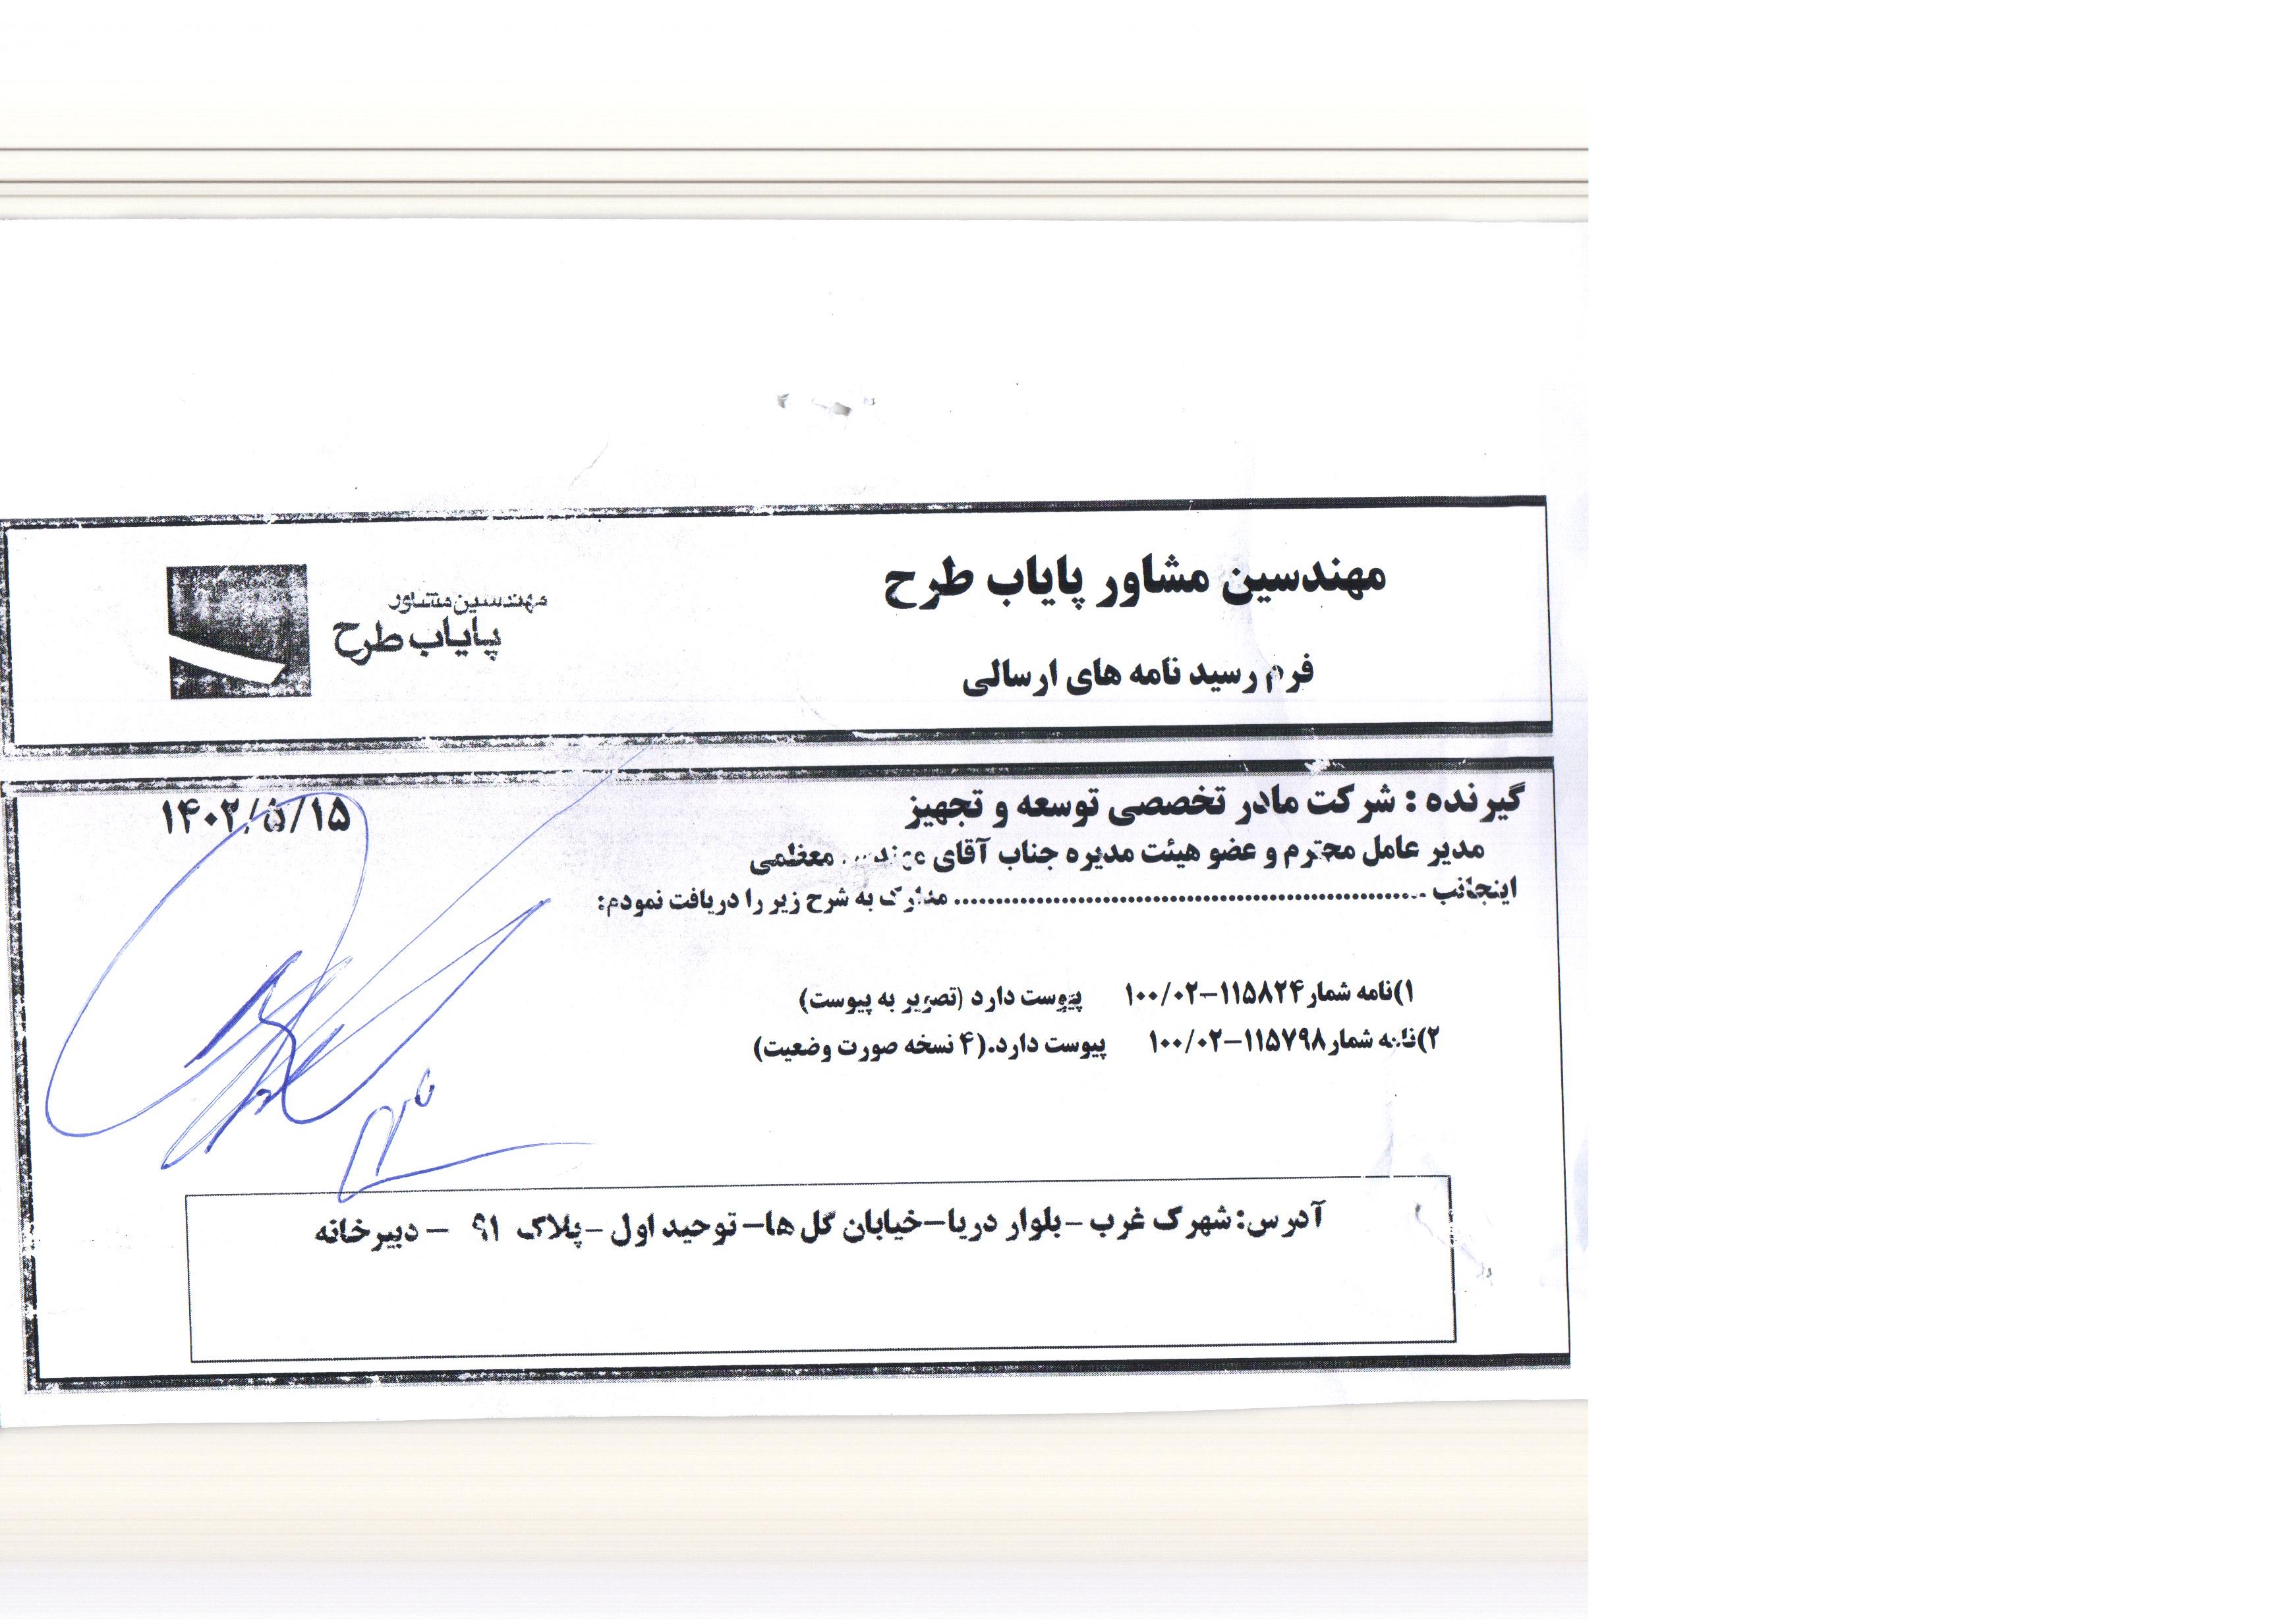 مهندسین مشاور پایاب طرح
مهندسین مشاور
پایاب طرح
فرم رسید نامه های ارسالی
گیرنده : شرکت مادر تخصصی توسعه و تجهیز
۱۴۰۲/۵/۱۵
مدیر عامل محترم و عضو هیئت مدیره جناب آقای مهندس معظمی
اینجانب ........................................................ مدارک به شرح زیر را دریافت نمودم:
۱)نامه شمار ۱۱۵۸۲۴-۱۰۰/۰۲ پیوست دارد (تصویر به پیوست)
۲)نامه شمار ۱۱۵۷۹۸-۱۰۰/۰۲ پیوست دارد.(۴ نسخه صورت وضعیت)
آدرس: شهرک غرب -بلوار دریا-خیابان گل ها- توحید اول -پلاک ۹۱ - دبیرخانه